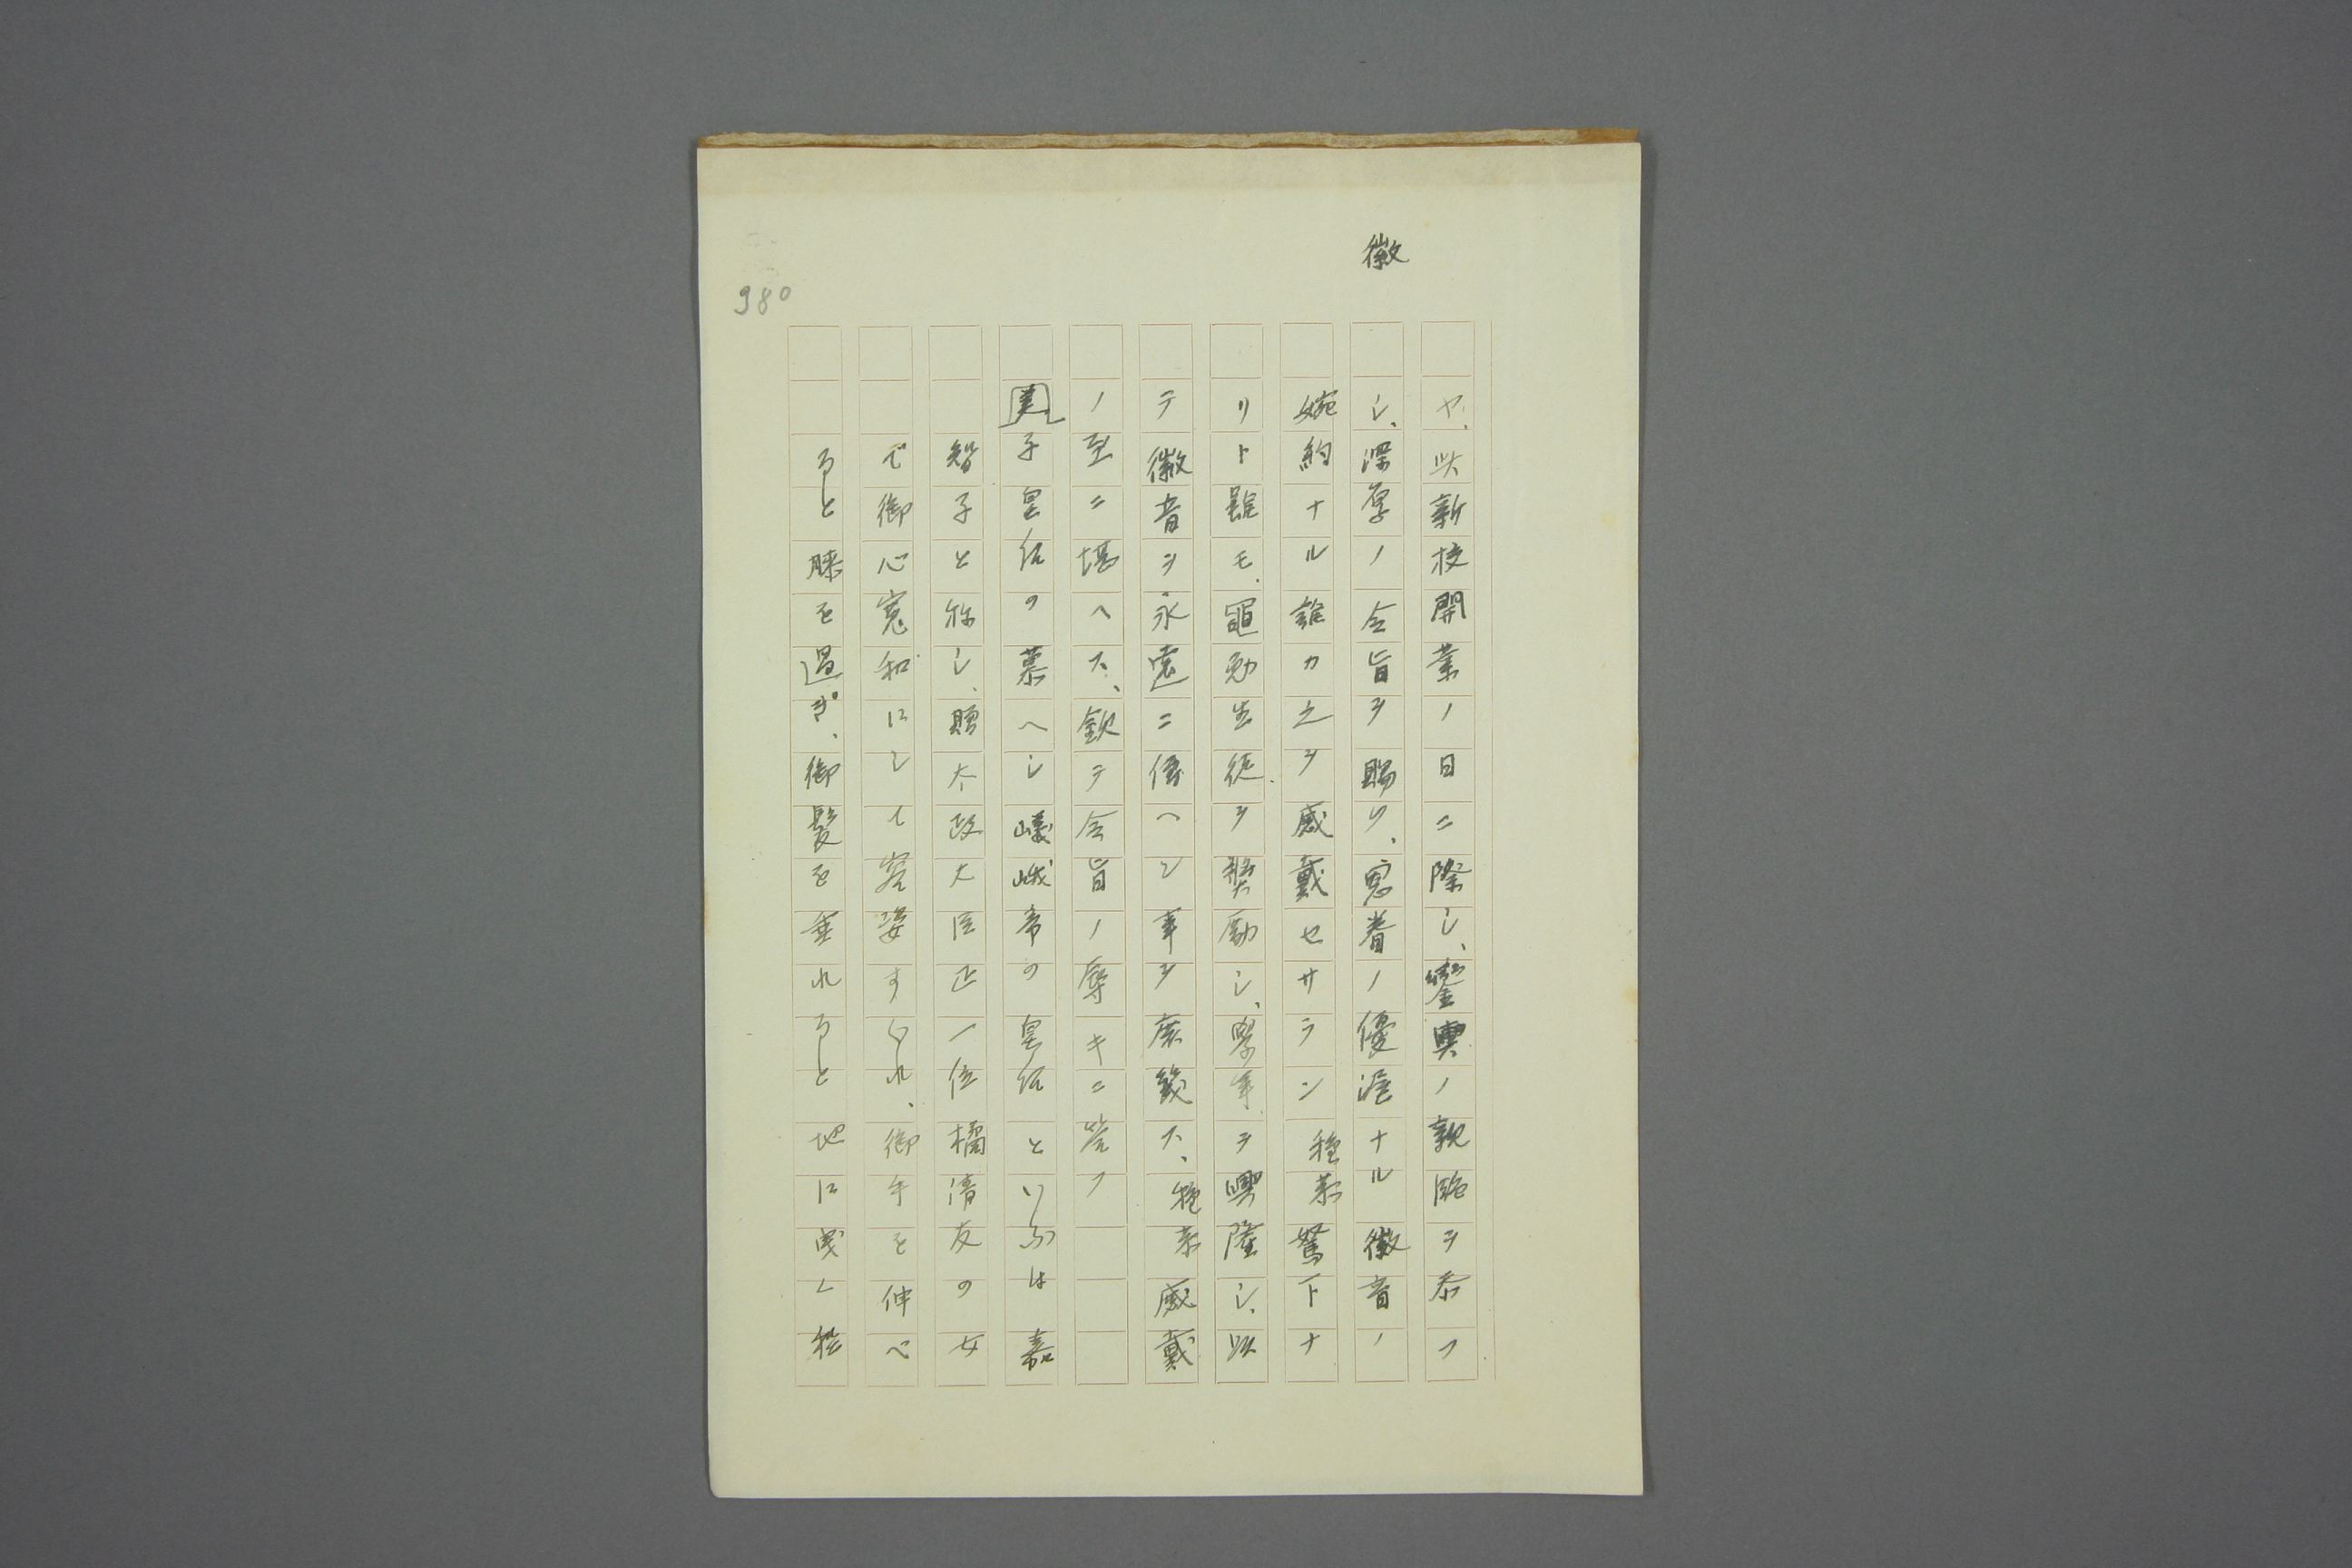 徽
ヤ、此新校開業ノ日ニ際シ、鑾輿ノ親臨ヲ忝フ
シ、深厚ノ令旨ヲ賜ヒ、寵眷ノ優渥ナル徽音ノ
婉約ナル誰カ之ヲ感戴セサラン穏恭駑下ナ
リト雖モ、黽勉生徒ヲ奨励シ、学事ヲ興隆シ、以
テ徽音ヲ永遠ニ伝ヘン事ヲ庶幾ス、穏恭感戴
ノ至ニ堪ヘス、欽テ令旨ノ辱キニ答フ
美子皇后の慕へし嵯峨帝の皇后といふは嘉
智子と称し、贈太政大臣正一位橘清友の女
で御心寛和にして容姿すぐれ、御手を伸べ
ると膝を過ぎ、御髪を垂れると地に曳く程
980